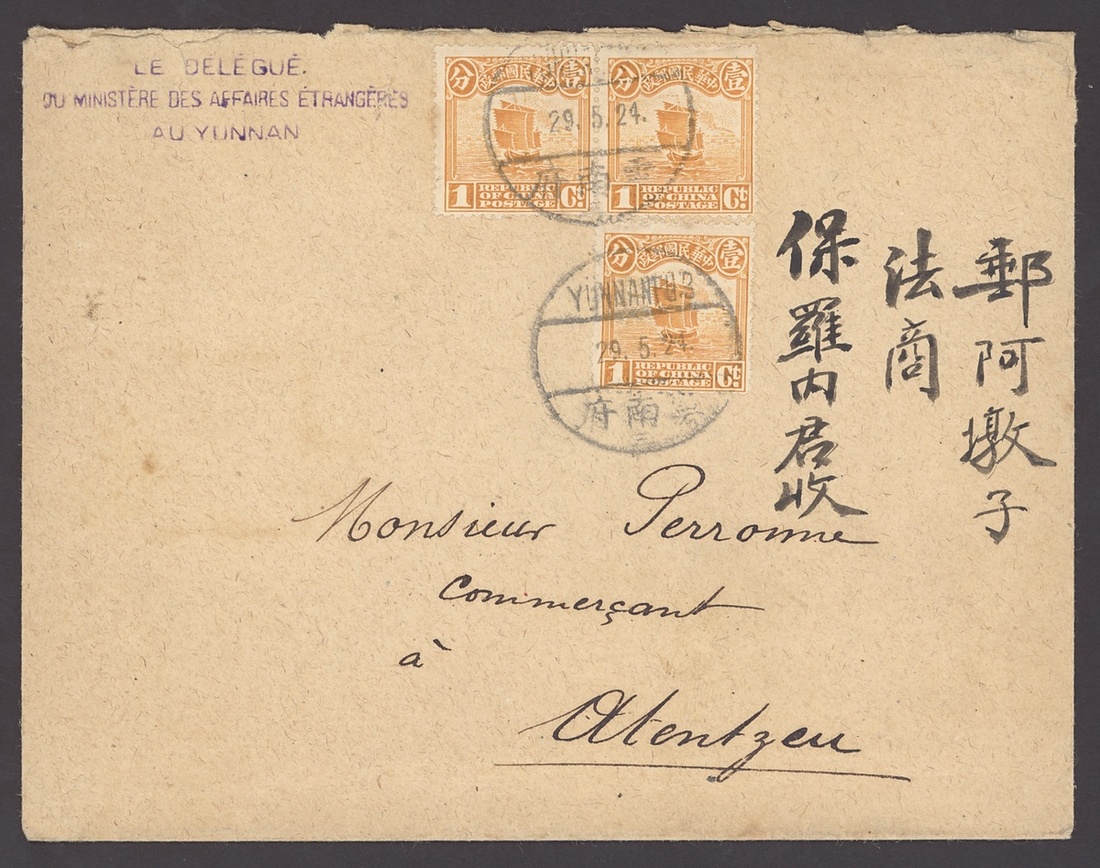 LE DÉLÉGUÉ.
DU MINISTÈRE DES AFFAIRES ÉTRANGÈRES
AU YUNNAN
中華民國郵政
壹 分
1 REPUBLIC OF CHINA POSTAGE Ct.
中華民國郵政
壹 分
1 REPUBLIC OF CHINA POSTAGE Ct.
29.5.24.
雲南府
中華民國郵政
壹 分
1 REPUBLIC OF CHINA POSTAGE Ct.
29.5.24.
雲南府
郵阿墩子
法商
保羅内君收
Monsieur Perronne
commerçant
à
Atentzeu